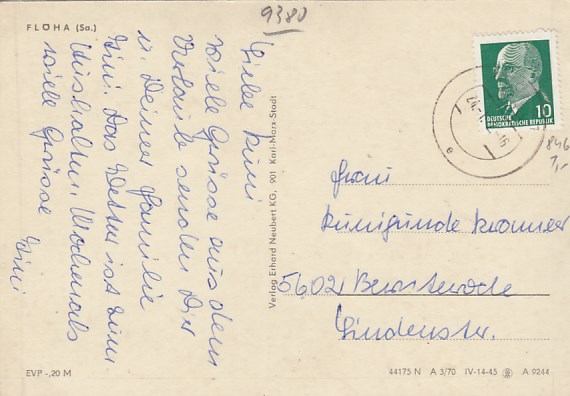 9380
FLÖHA (Sa.)
Liebe Kuni
viele Grüsse aus dem
Urlaub senden Dir
u. Deiner Familie
Das Wetter ist zum
Aushalten. Nochmals
viele Grüsse
Verlag Erhard Neubert KG, 901 Karl-Marx-Stadt
DEUTSCHE
DEMOKRATISCHE REPUBLIK 10
846
7,-
Frau
Kunigunde Krämer
5602 Bernterode
Lindenstr.
EVP -,20 M
44175 N A 3/70 IV-14-45 A 9244